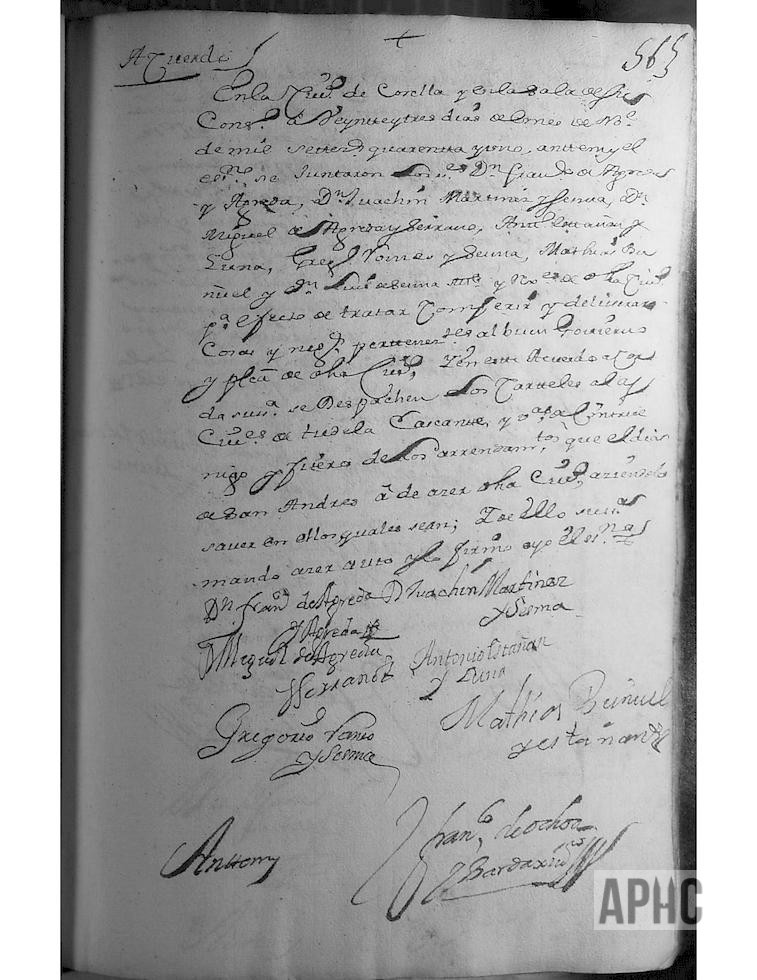 Acuerdo
+
565
En la Ciu.d de Corella y en la sala de su
Cons.o a Veynte y tres dias de el mes de No.e
de mil setter.s quarenta y uno, ante my el
es.no se Juntaron los ss.es Dn fran.co de Agreda
y Agreda, Dn Juachin Martinez y sesma, Dn
Miguel de Agreda y serrano, Anto estañan y
Luna, Greg.o Vonto y sesma, Mathias Bu
ñuel y Dn Luis de sesma y de dha Ciu.d
p.a efecto de tratar Conferir y deliverar
Cosas y neg.s pertteneze.tes al buen Govierno
y de dha Ciu.d, Y en este Acuerdo
da su se Despachen los Cartteles a las
Ciu.es de tudela Cascante, y
nigo y fitero de los arrendam.tos que el dia
de San Andres a de azer dha Ciu.d, aziendo
saver en ellos quales sean; Y de ello su
mando azer auto y lo firmo e yo el es.no
Dn fran.co de Agreda Dn Juachin Martinez
y Agreda y Sesma
Dn Miguel de Agreda Antonio Estañan
y Serrano y Luna
Gregorio Vonto Mathias Buñuel
y Sesma y estañan
Ante my fran.co de Ochoa
y Bardaxi
APHC